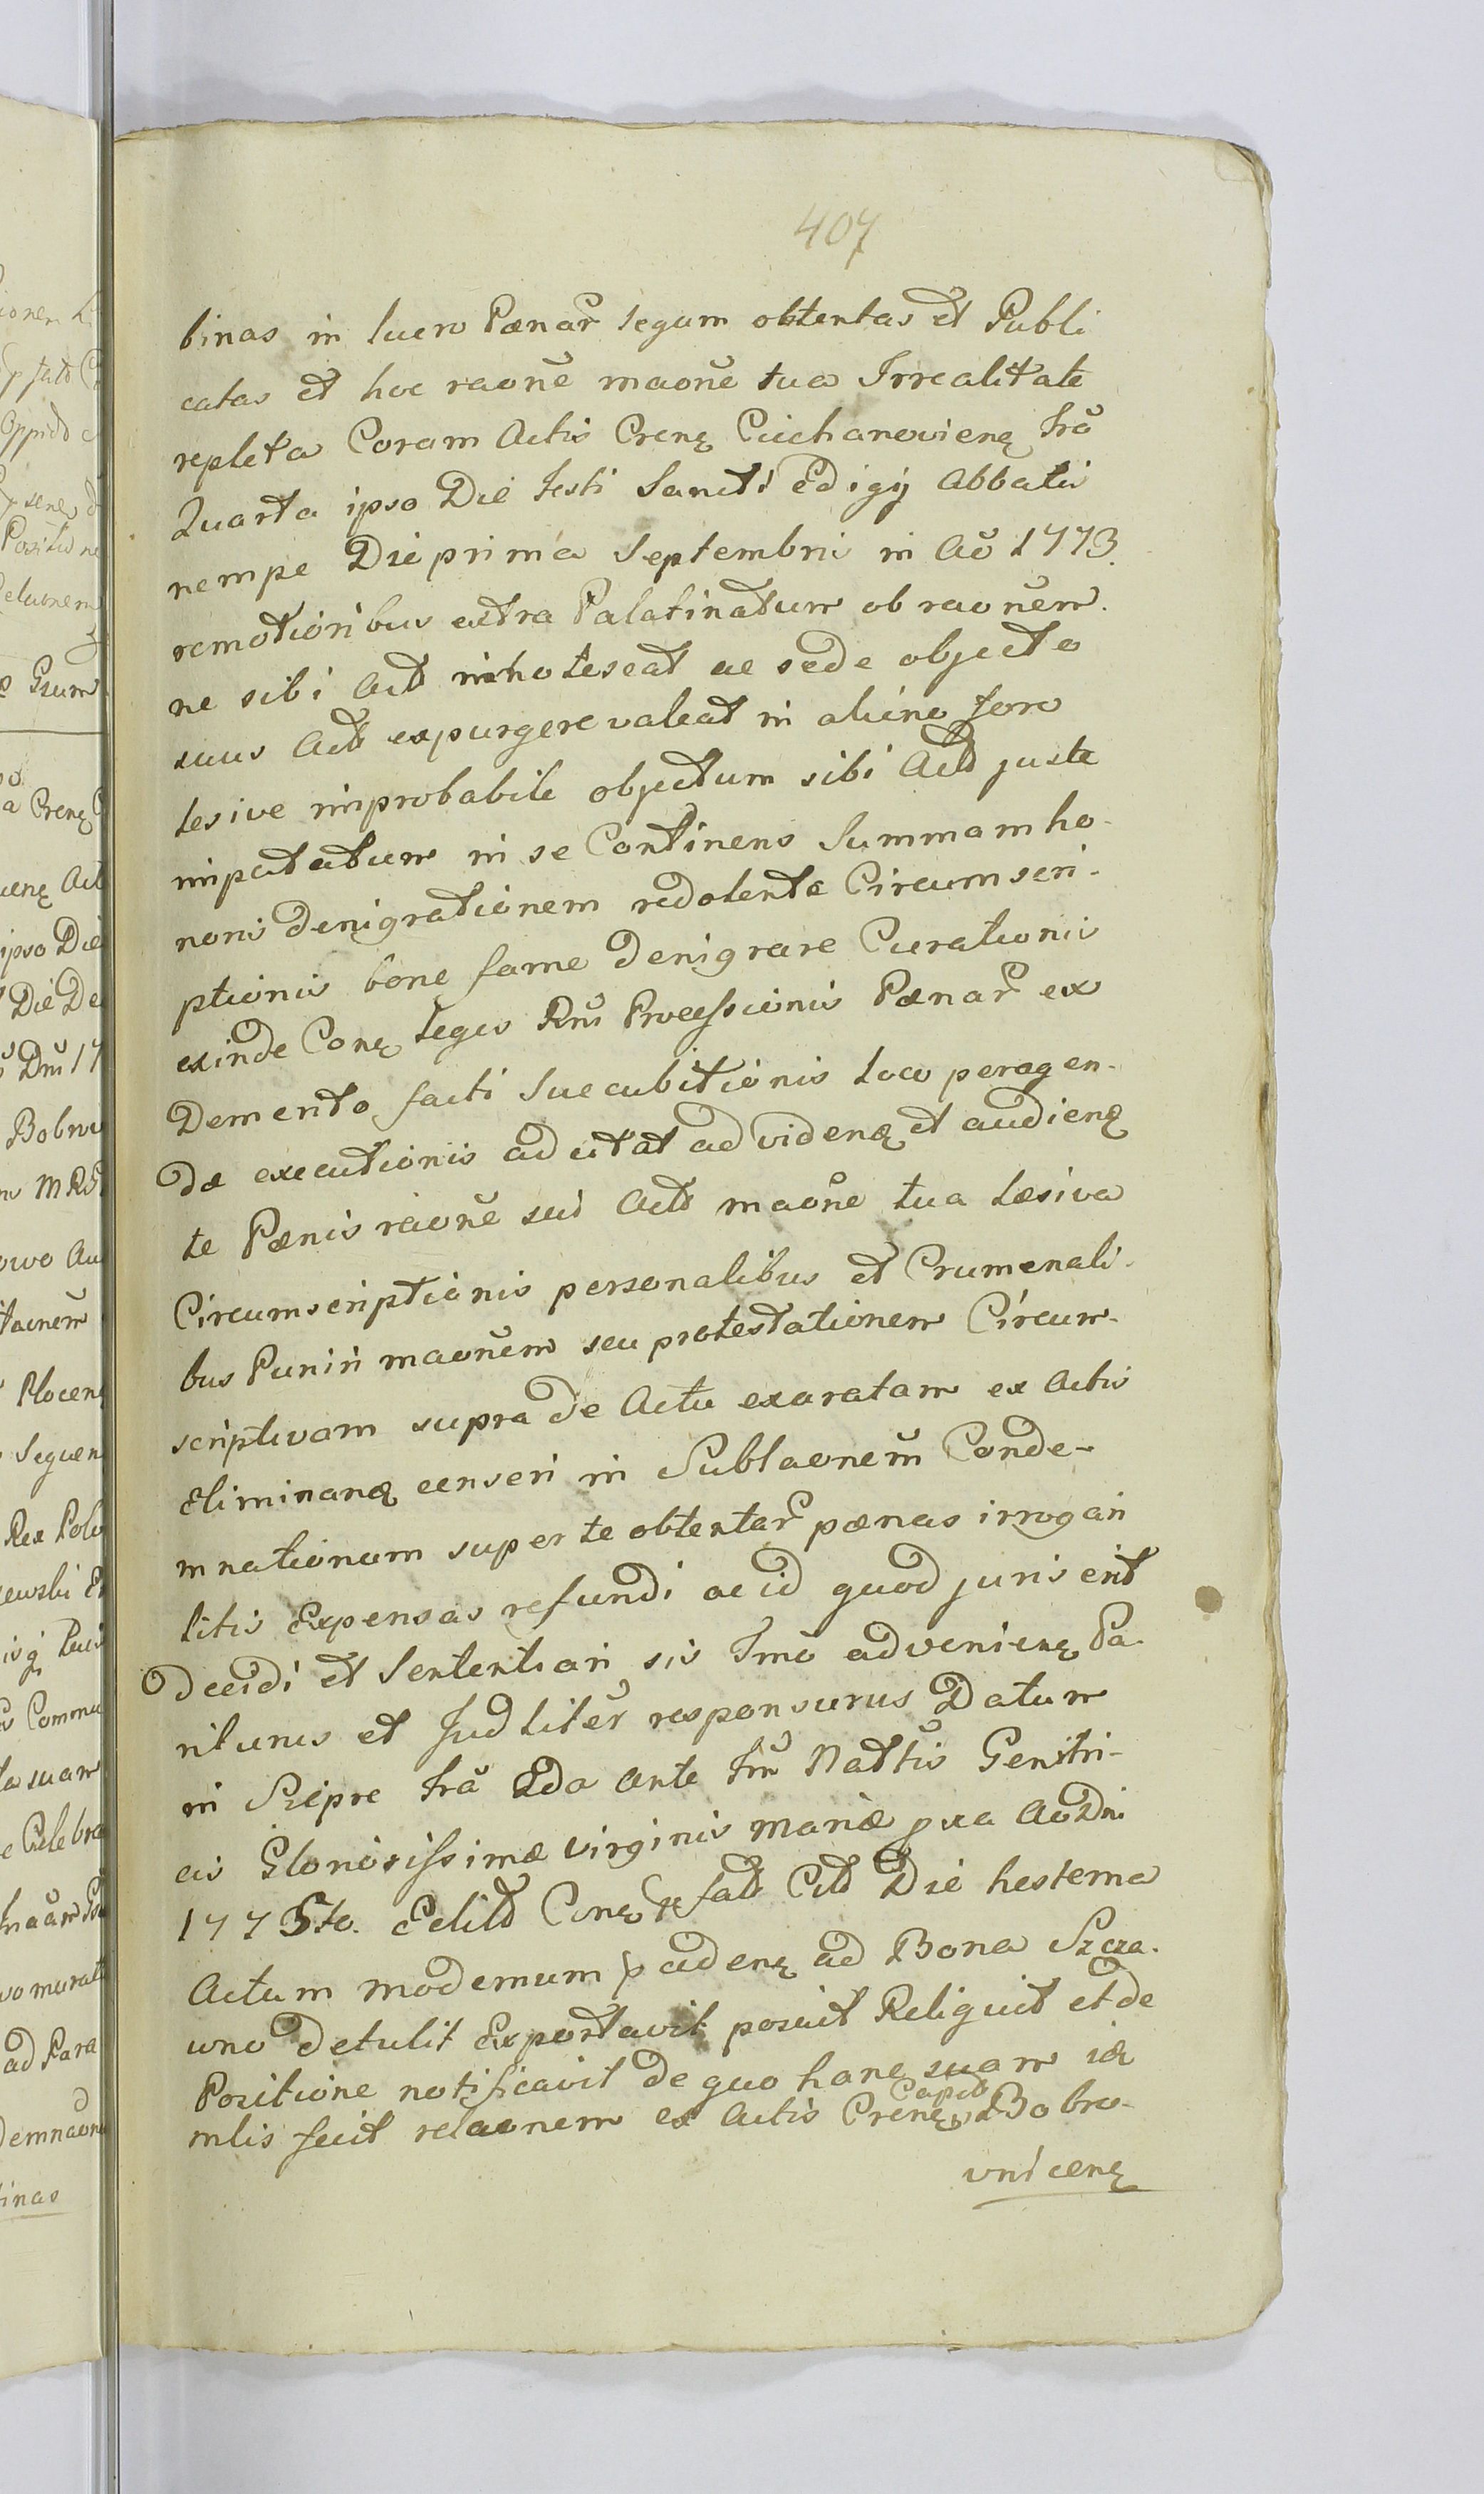 407
binas in lucro Pænar̃ legum obtentas et Publi
catas et hoc raoñe maoñe tua Irrealitate
repleta Coram Actis Crenę Ciechanovienę frã
Quarta ipso Die festi Sancti Edigij Abbatis
nempe Die prima Septembris in Aõ 1773.
remotioribus extra Palatinatum ob raoñem.
ne sibi Actð inhotescat ac sede objecto
suus Actð expurgere valeat in alieno foro
lesive improbabile objectum sibi Actð juste
imputatum in se Continens Summam ho-
noris denigrationem redolentæ Circumscri-
ptionis bonę fame denigrare Curationis
exinde Conę legis Rñi Processionis Pænar̃ ex
Demerito facti Succubitionis loco peragen-
dæ executionis ad citat ad videnę et audienę
te Pænis raoñe sui Actð maoñe tua læsiva
Circumscriptionis personalibus et Crumenali-
bus Puniri maoñem seu protestationem Circum-
scriptivam supra de Actu exaratam ex Actis
Eliminanę censeri in Sublaonem̃ Conde-
mnationum super te obtentar̃ pænas irrogari
litis Expensas refundi ac id quod juris erit
decidi et Sententiari sis Tmõ advenienę Pa-
riturus et Judliter̃ responsurus Datum
in Sierpe frã 2da ante frũ Nattis Genitri-
cis Gloriosissimæ Virginis Mariæ pxa Ao Dni
1775to. Edild Conę pfatð Citð Die hesterna
Actum modernum padenę ad Bona Szcza-
wno detulit Exportavit posuit Reliquit et de
Positione notificavit de quo hanc suam iæ
mlis fecit relaonem ex Actis Crenę Capitð Bobro-
vnicenę